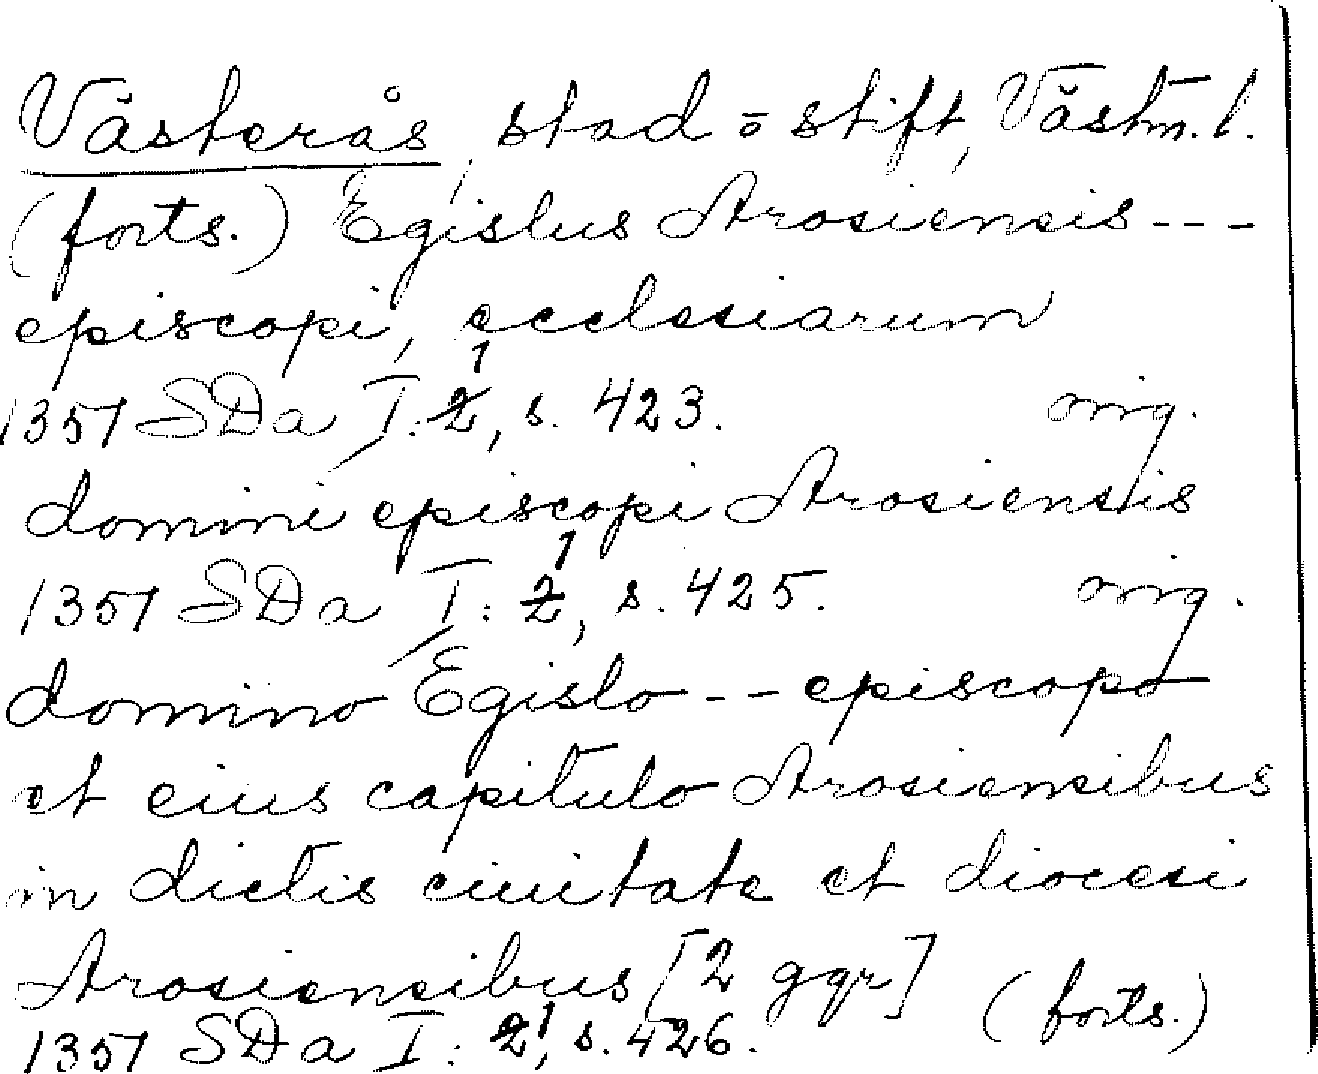 Västerås, stad o stift, Västm. l.
(forts.) Egislus Arosiensis ---
episcopi, ecclesiarum
1357 SDa I:1, s. 423. orig.
domini episcopi Arosiensis
1357 SDa I:1, s. 425. orig.
domino Egislo -- episcopo
et eius capitulo Arosiensibus
in dictis ciuitate et diocesi
Arosiensibus [2 ggr] (forts.)
1357 SDa I:1, s. 426.